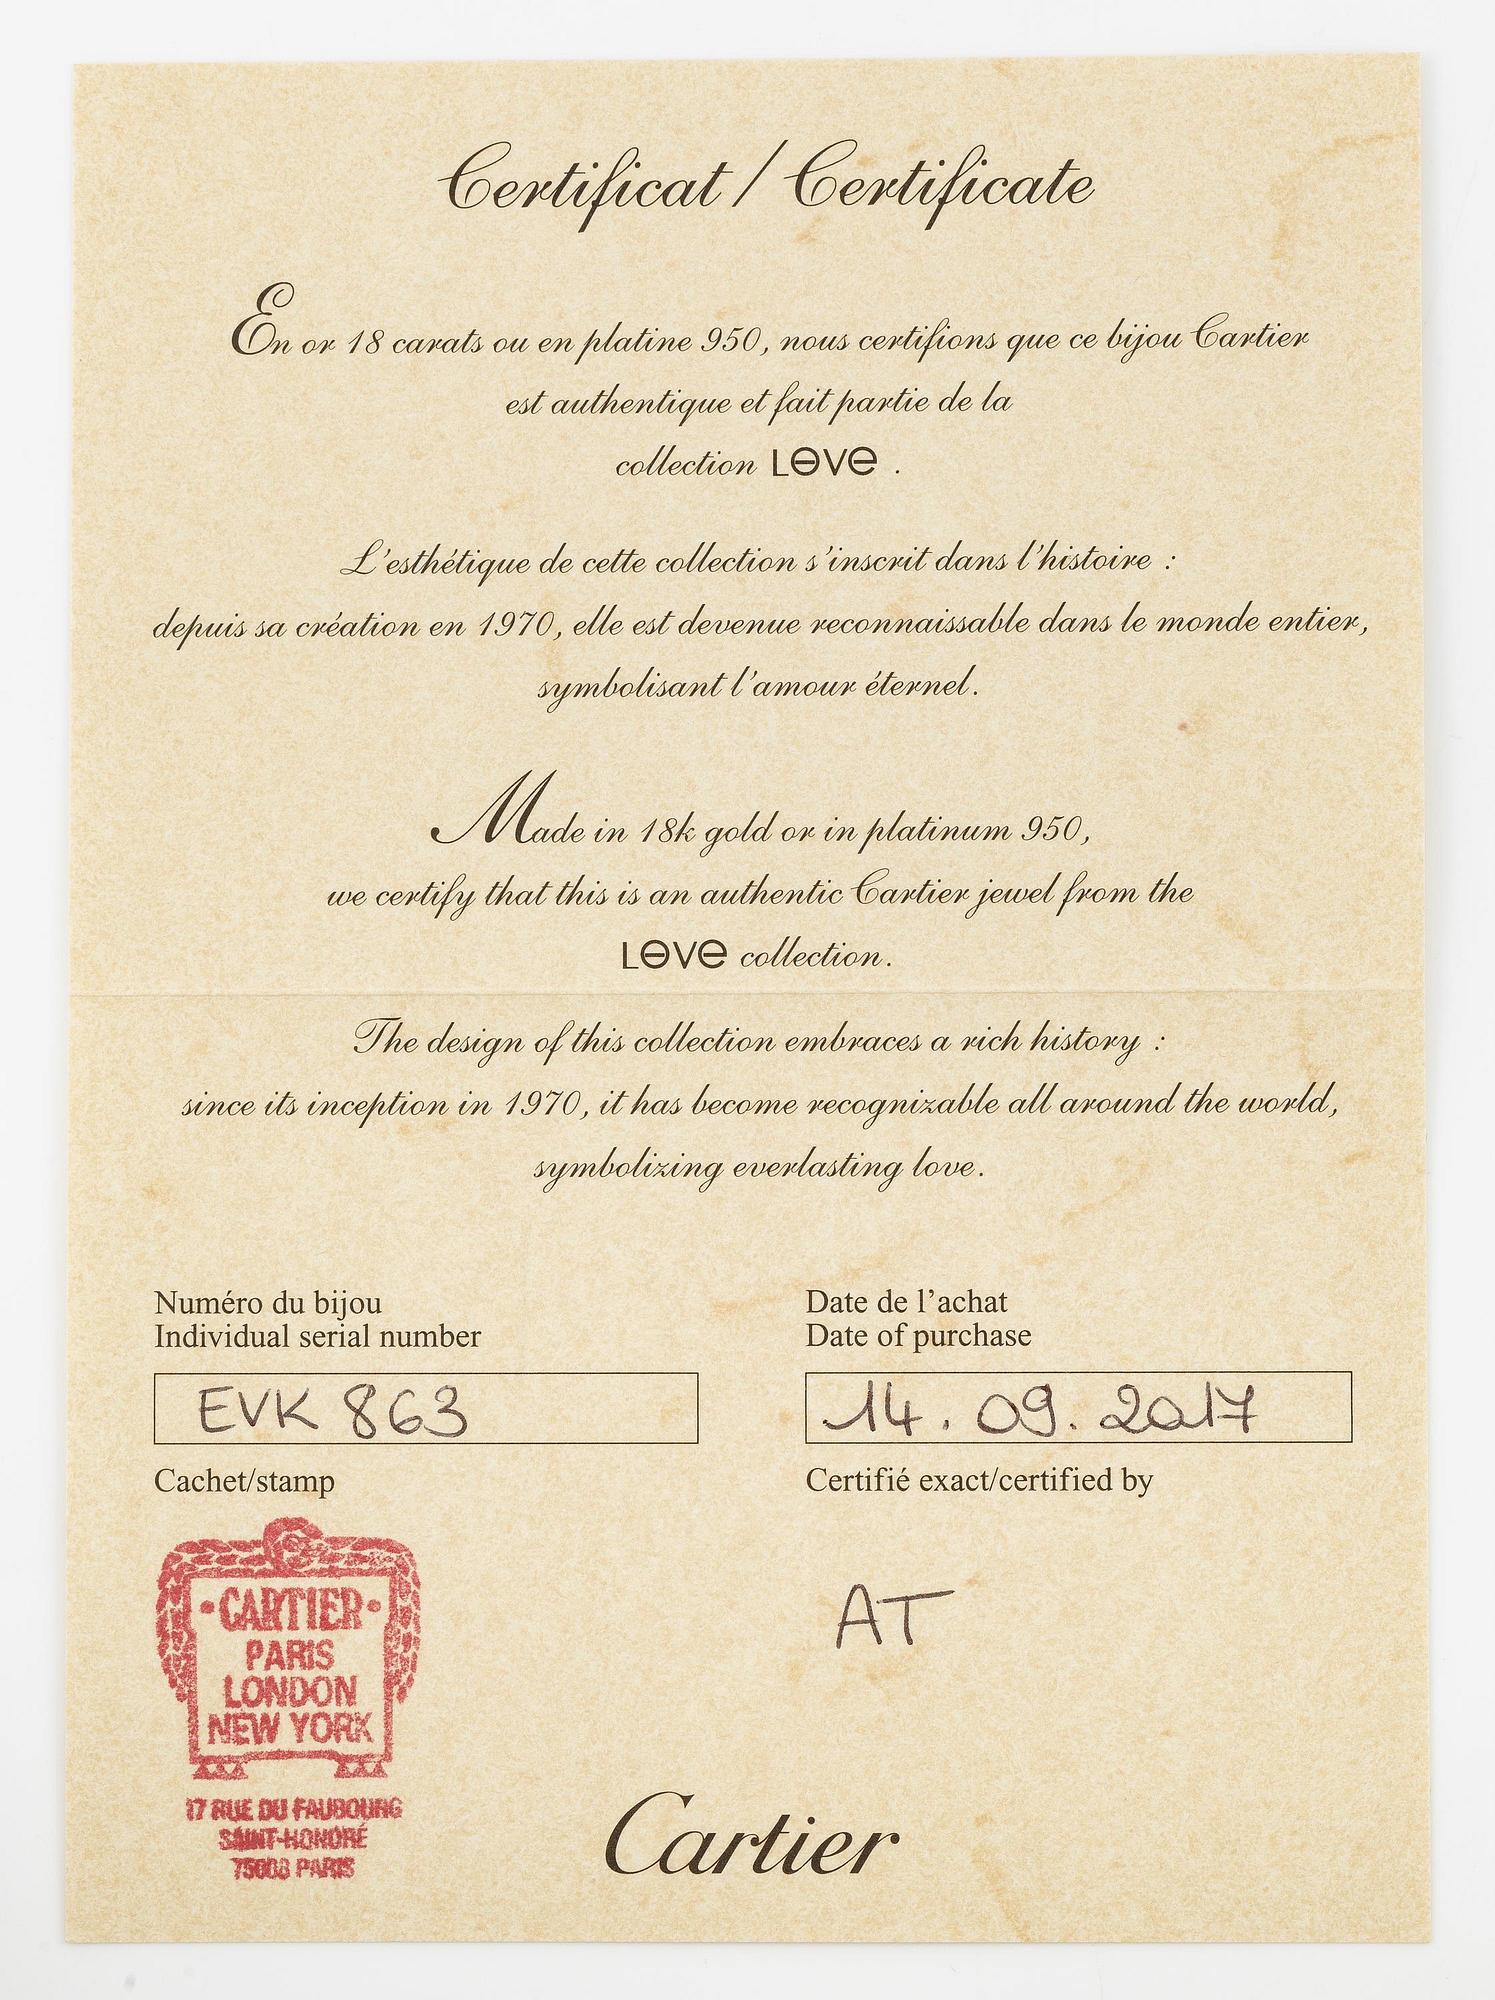 Certificat / Certificate
En or 18 carats ou en platine 950, nous certifions que ce bijou Cartier
est authentique et fait partie de la
collection LOVE .
L'esthétique de cette collection s'inscrit dans l'histoire :
depuis sa création en 1970, elle est devenue reconnaissable dans le monde entier,
symbolisant l'amour éternel.
Made in 18k gold or in platinum 950,
we certify that this is an authentic Cartier jewel from the
LOVE collection.
The design of this collection embraces a rich history :
since its inception in 1970, it has become recognizable all around the world,
symbolizing everlasting love.
Numéro du bijou
Individual serial number
EVK 863
Date de l'achat
Date of purchase
14. 09. 2017
Cachet/stamp
Certifié exact/certified by
•CARTIER•
PARIS
LONDON
NEW YORK
17 RUE DU FAUBOURG
SAINT-HONORÉ
75008 PARIS
AT
Cartier